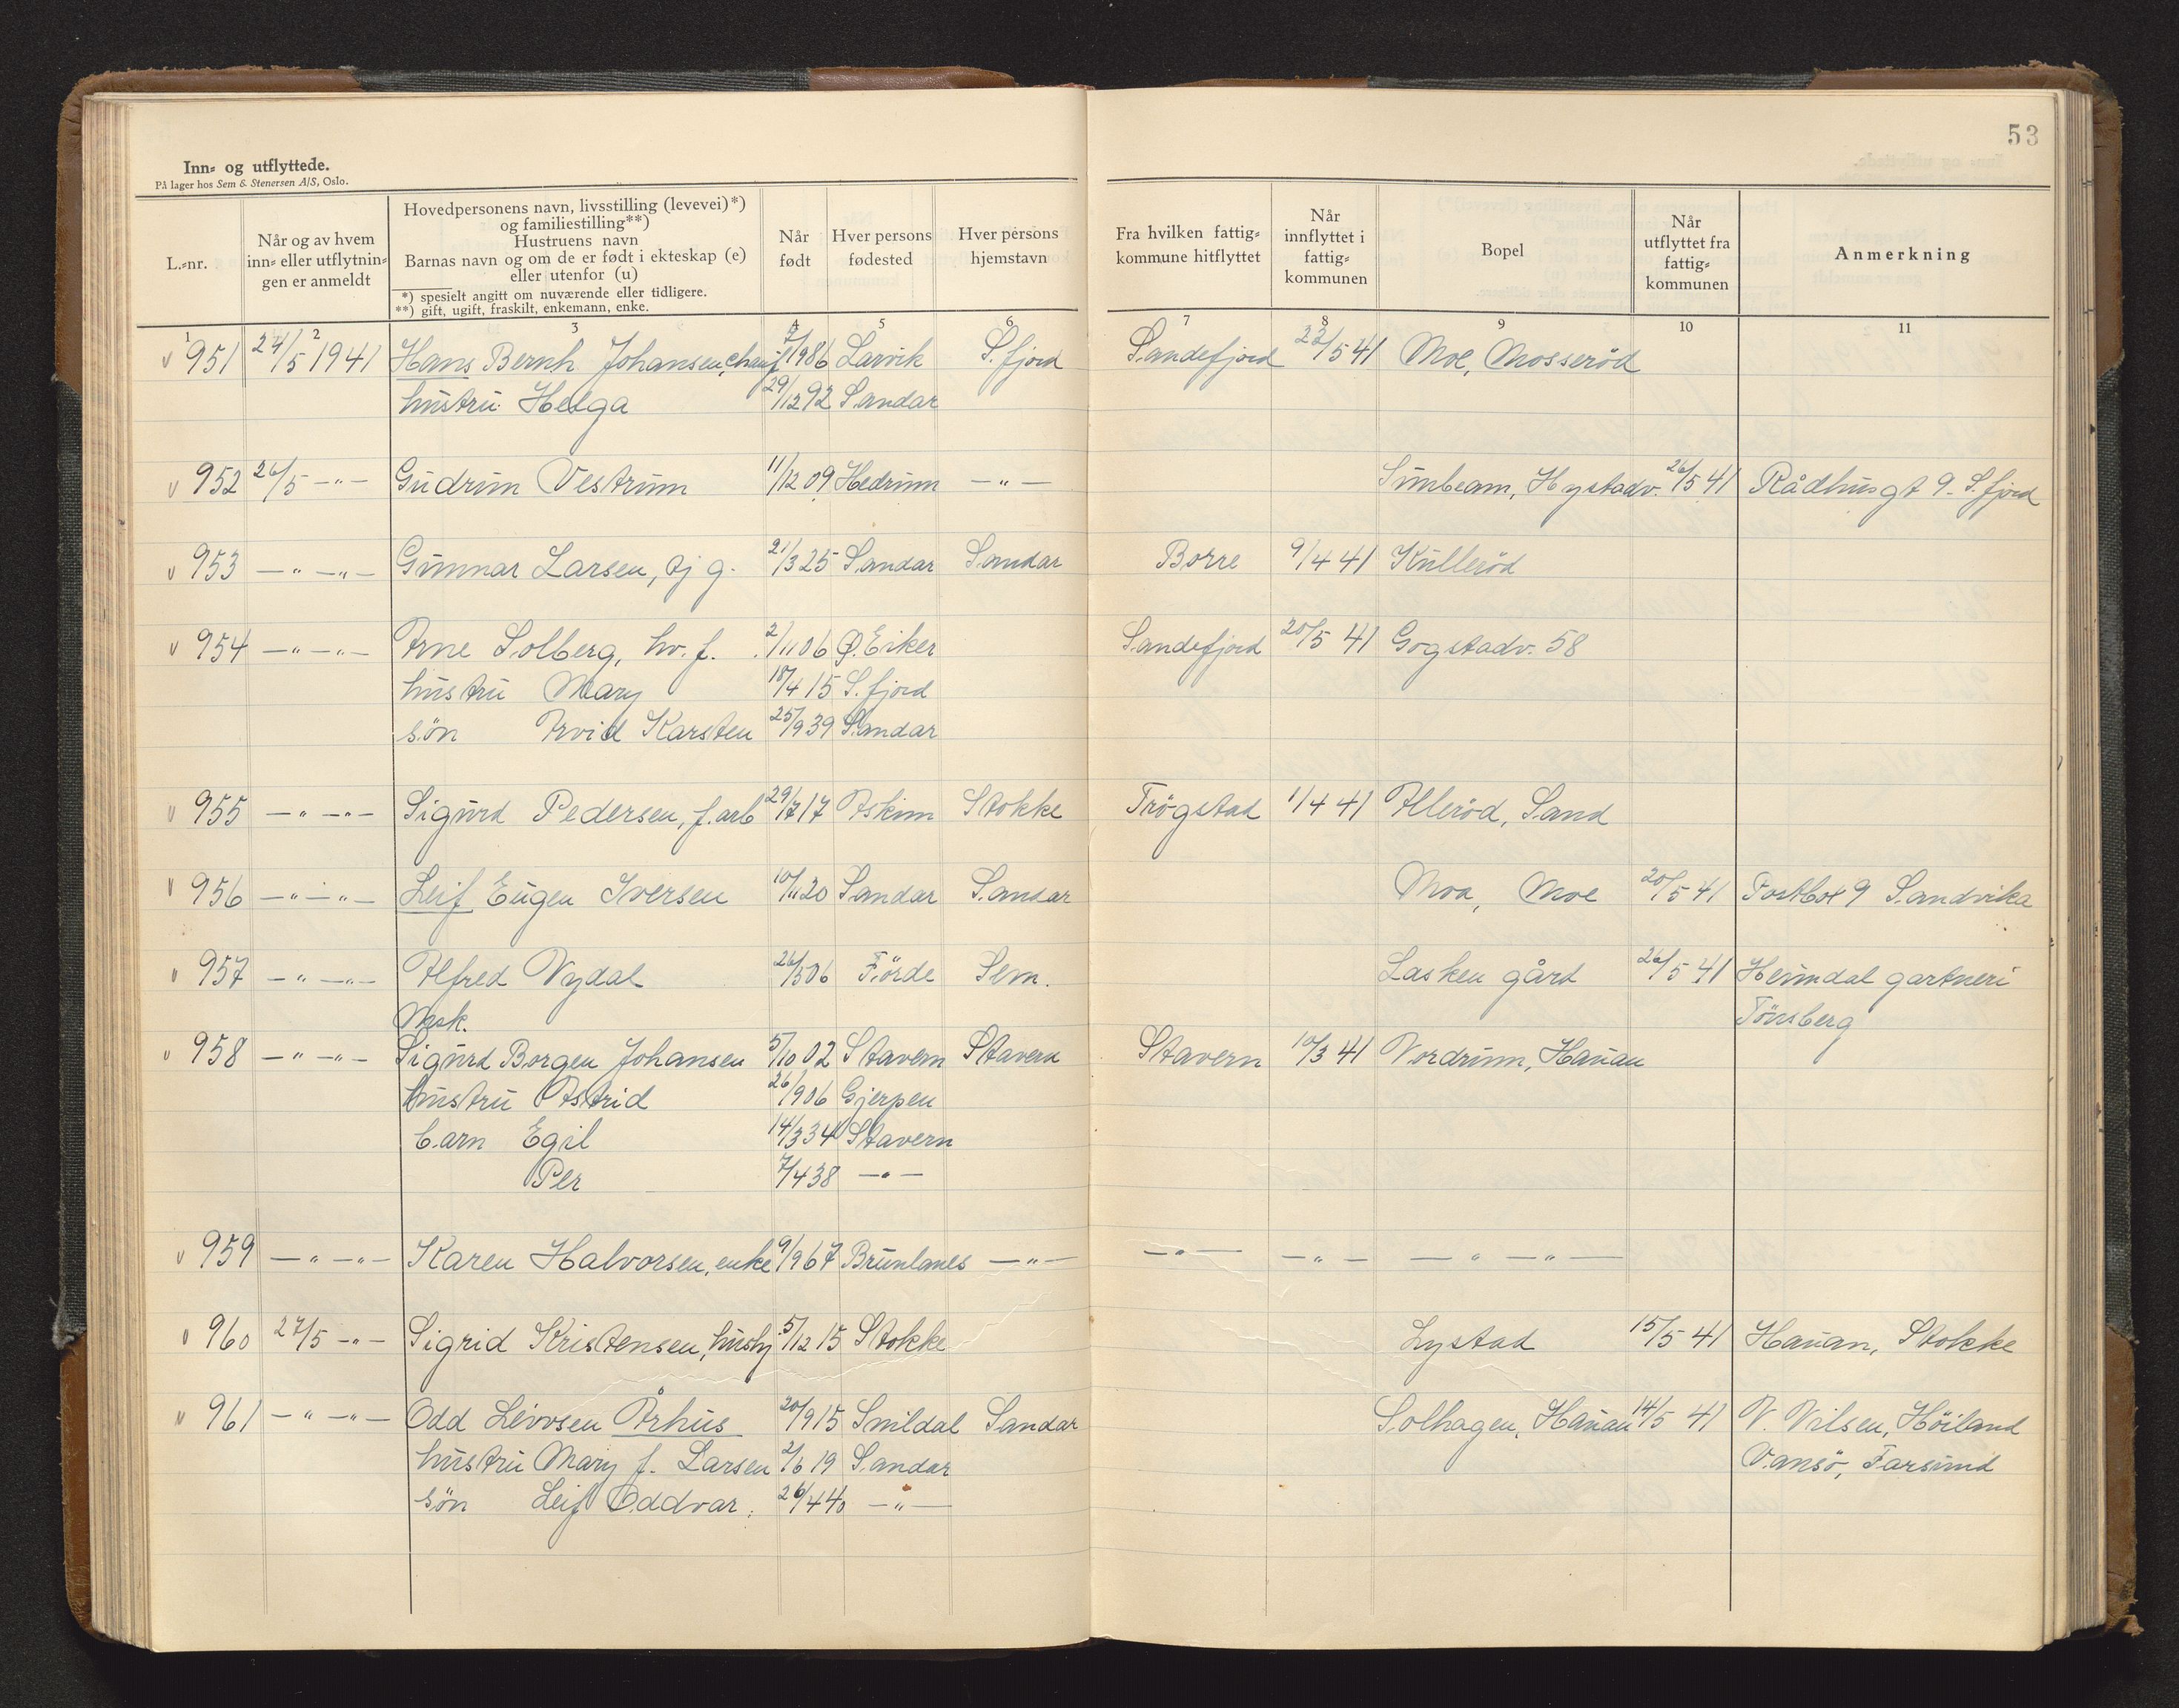 53
Inn- og utflyttede.
På lager hos Sem & Stenersen A/S, Oslo.
L.-nr.
Når og av hvem inn- eller utflytningen er anmeldt
Hovedpersonens navn, livsstilling (levevei)*) og familiestilling**)
Hustruens navn
Barnas navn og om de er født i ekteskap (e) eller utenfor (u)
*) spesielt angitt om nuværende eller tidligere.
**) gift, ugift, fraskilt, enkemann, enke.
Når født
Hver persons fødested
Hver persons hjemstavn
Fra hvilken fattigkommune hitflyttet
Når innflyttet i fattigkommunen
Bopel
Når utflyttet fra fattigkommunen
Anmerkning
1 2 3 4 5 6 7 8 9 10 11
951 24/5 1941 Hans Bernh Johansen, chauf 1986 Larvik S.fjord Sandefjord 22/5 41 Moe, Mosserød
hustru Helga 29/12 92 Sandar
952 26/5 —"— Gudrun Vestrum 11/12 09 Hedrum —"— Sunbeam, Hystadv. 26/5 41 Rådhusgt 9. S.fjord
953 —"—"— Gunnar Larsen, sj g. 21/3 25 Sandar Sandar Borre 9/4 41 Kullerød
954 —"—"— Arne Solberg, hv. f. 2/11 06 Ø. Eiker Sandefjord 20/5 41 Gogstadv. 58
hustru Mary 18/4 15 S.fjord
søn Arvid Karsten 25/9 39 Sandar
955 —"—"— Sigurd Pedersen, f.arb 29/7 17 Askim Stokke Trögstad 1/4 41 Allerød, Sand
956 —"—"— Leif Eugen Iversen 10/11 20 Sandar Sandar Moa, Moe 20/5 41 Postbox 9 Sandvika
957 —"—"— Alfred Nydal 26/5 06 Förde Sem. Lasken gård 26/5 41 Heimdal gartneri
Tönsberg
Msk.
958 —"—"— Sigurd Borgen Johansen 5/10 02 Stavern Stavern Stavern 10/3 41 Nordrum, Hauan
hustru Astrid 26/9 06 Gjerpen
barn Egil 14/3 34 Stavern
Per 7/4 38 —"—
959 —"—"— Karen Halvorsen, enke 9/9 67 Brunlanes —"— —"— —"— —"—"—
960 27/5 —"— Sigrid Kristensen, hushj. 5/12 15 Stokke Lystad 15/5 41 Hauan, Stokke
961 —"—"— Odd Levorsen Århus 20/9 15 Snildal Sandar Solhagen, Hauan 14/5 41 V. Nilsen, Höiland
hustru Mary f. Larsen 2/6 19 Sandar Vansö, Farsund
søn Leif Oddvar. 26/4 40 —"—